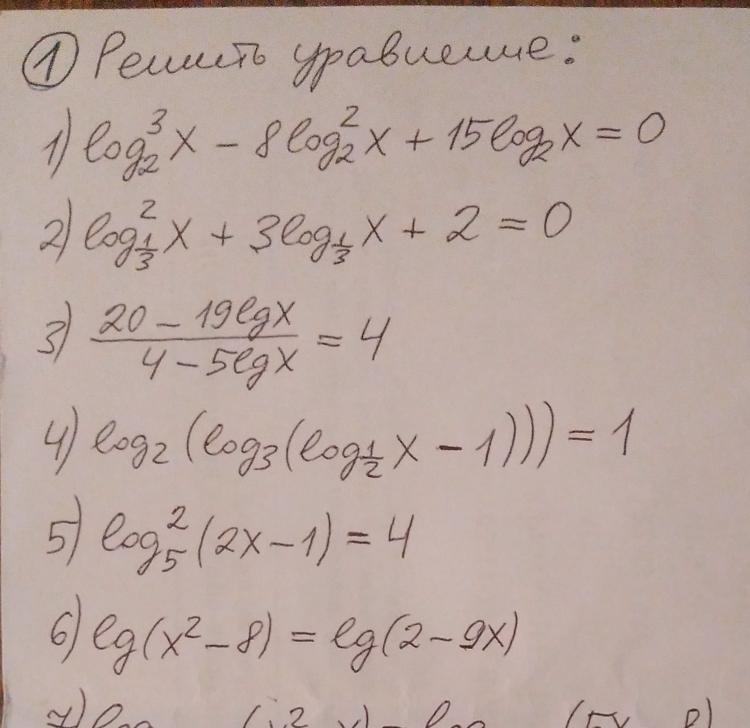 ① Решить уравнение:
1) log₂³x − 8log₂²x + 15log₂x = 0
2) log²_{1/3}x + 3log_{1/3}x + 2 = 0
3) (20 − 19lgx)/(4 − 5lgx) = 4
4) log₂(log₃(log_{1/2}x − 1))) = 1
5) log₅²(2x−1) = 4
6) lg(x²−8) = lg(2−9x)
7) log